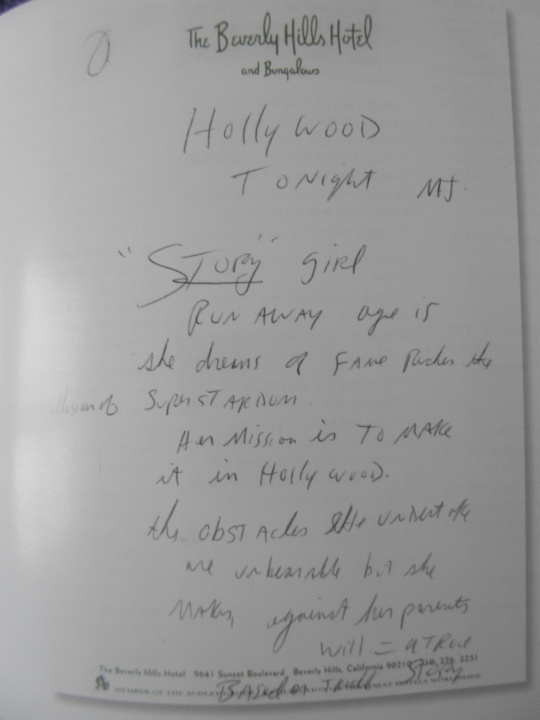 The Beverly Hills Hotel
and Bungalows
HollyWOOD
TONight MJ.
"STORY" giRl
RUN AWAY age is
she dreams of FAME the
SuperSTARDUM.
Her Mission is TO MAKe
it in HollywooD.
the OBSTAcles she undertake
are unbearable but she
Makes against her parents
will = a TRue
The Beverly Hills Hotel 9641 Sunset Boulevard Beverly Hills, California 90210 310 276 2251
BAseD on STORY
MEMBER OF THE